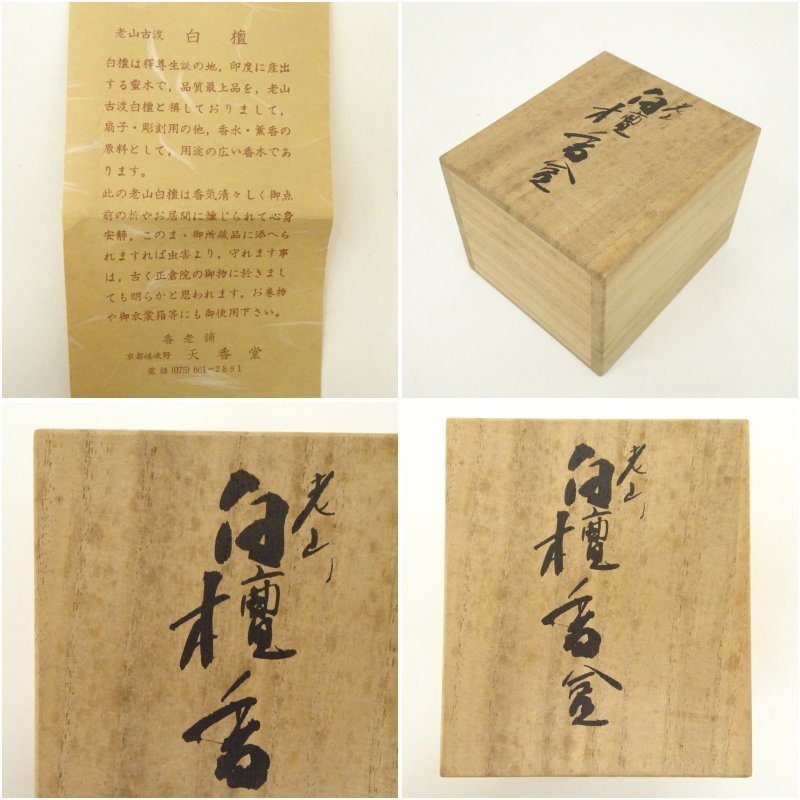 老山古渡 白檀
白檀は釋尊生誕の地，印度に産出
する靈木で，品質最上品を，老山
古渡白檀と稱しておりまして，
扇子・彫刻用の他，香水・薫香の
原料として，用途の広い香木であ
ります。
此の老山白檀は香気清々しく御点
前の折やお居間に燻じられて心身
安解，このまゝ御所蔵品に添へら
れますれば虫害より，守れます事
は，古く正倉院の御物に於きまし
ても明らかと思われます。お巻物
や御衣裳箱等にも御使用下さい。
香老舗
京都嵯峨野 天香堂
電話(075)861-2891
老山
白檀香盒
老山
白檀香
老山
白檀香盒